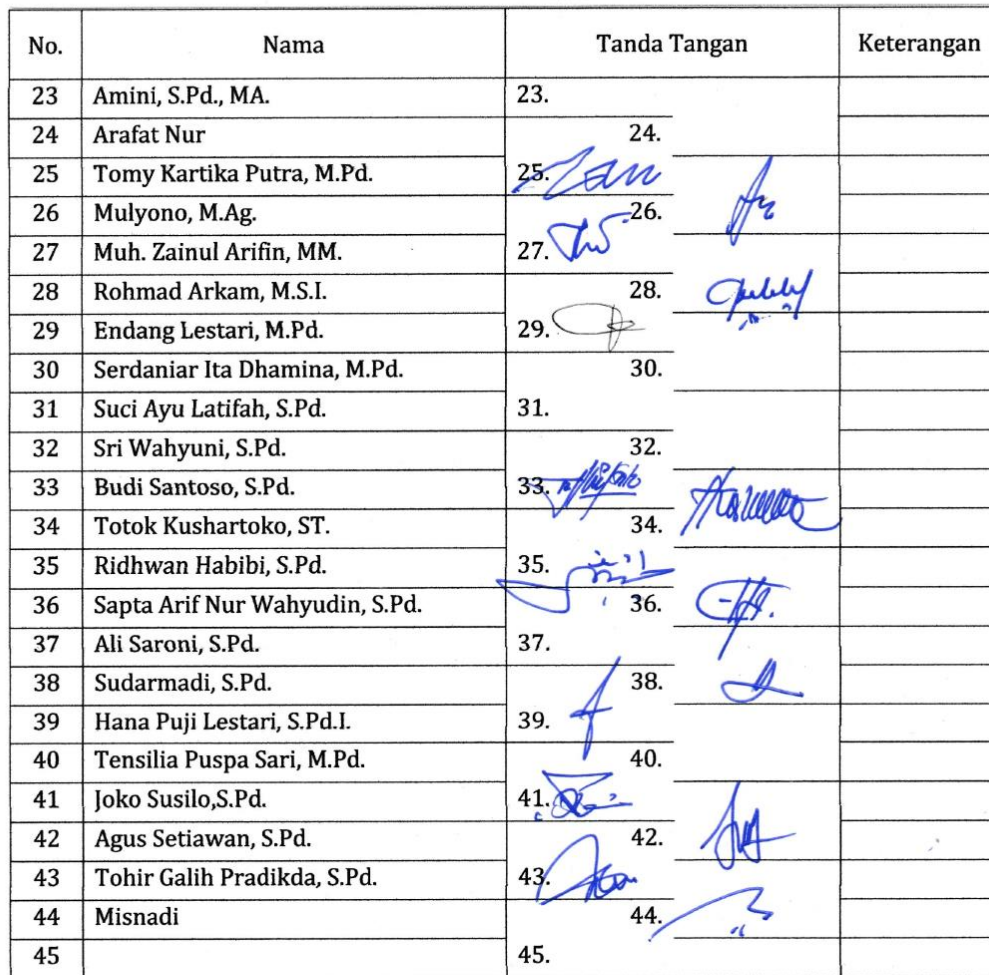 No. Nama Tanda Tangan Keterangan
23 Amini, S.Pd., MA. 23.
24 Arafat Nur 24.
25 Tomy Kartika Putra, M.Pd. 25.
26 Mulyono, M.Ag. 26.
27 Muh. Zainul Arifin, MM. 27.
28 Rohmad Arkam, M.S.I. 28.
29 Endang Lestari, M.Pd. 29.
30 Serdaniar Ita Dhamina, M.Pd. 30.
31 Suci Ayu Latifah, S.Pd. 31.
32 Sri Wahyuni, S.Pd. 32.
33 Budi Santoso, S.Pd. 33.
34 Totok Kushartoko, ST. 34.
35 Ridhwan Habibi, S.Pd. 35.
36 Sapta Arif Nur Wahyudin, S.Pd. 36.
37 Ali Saroni, S.Pd. 37.
38 Sudarmadi, S.Pd. 38.
39 Hana Puji Lestari, S.Pd.I. 39.
40 Tensilia Puspa Sari, M.Pd. 40.
41 Joko Susilo,S.Pd. 41.
42 Agus Setiawan, S.Pd. 42.
43 Tohir Galih Pradikda, S.Pd. 43.
44 Misnadi 44.
45 45.